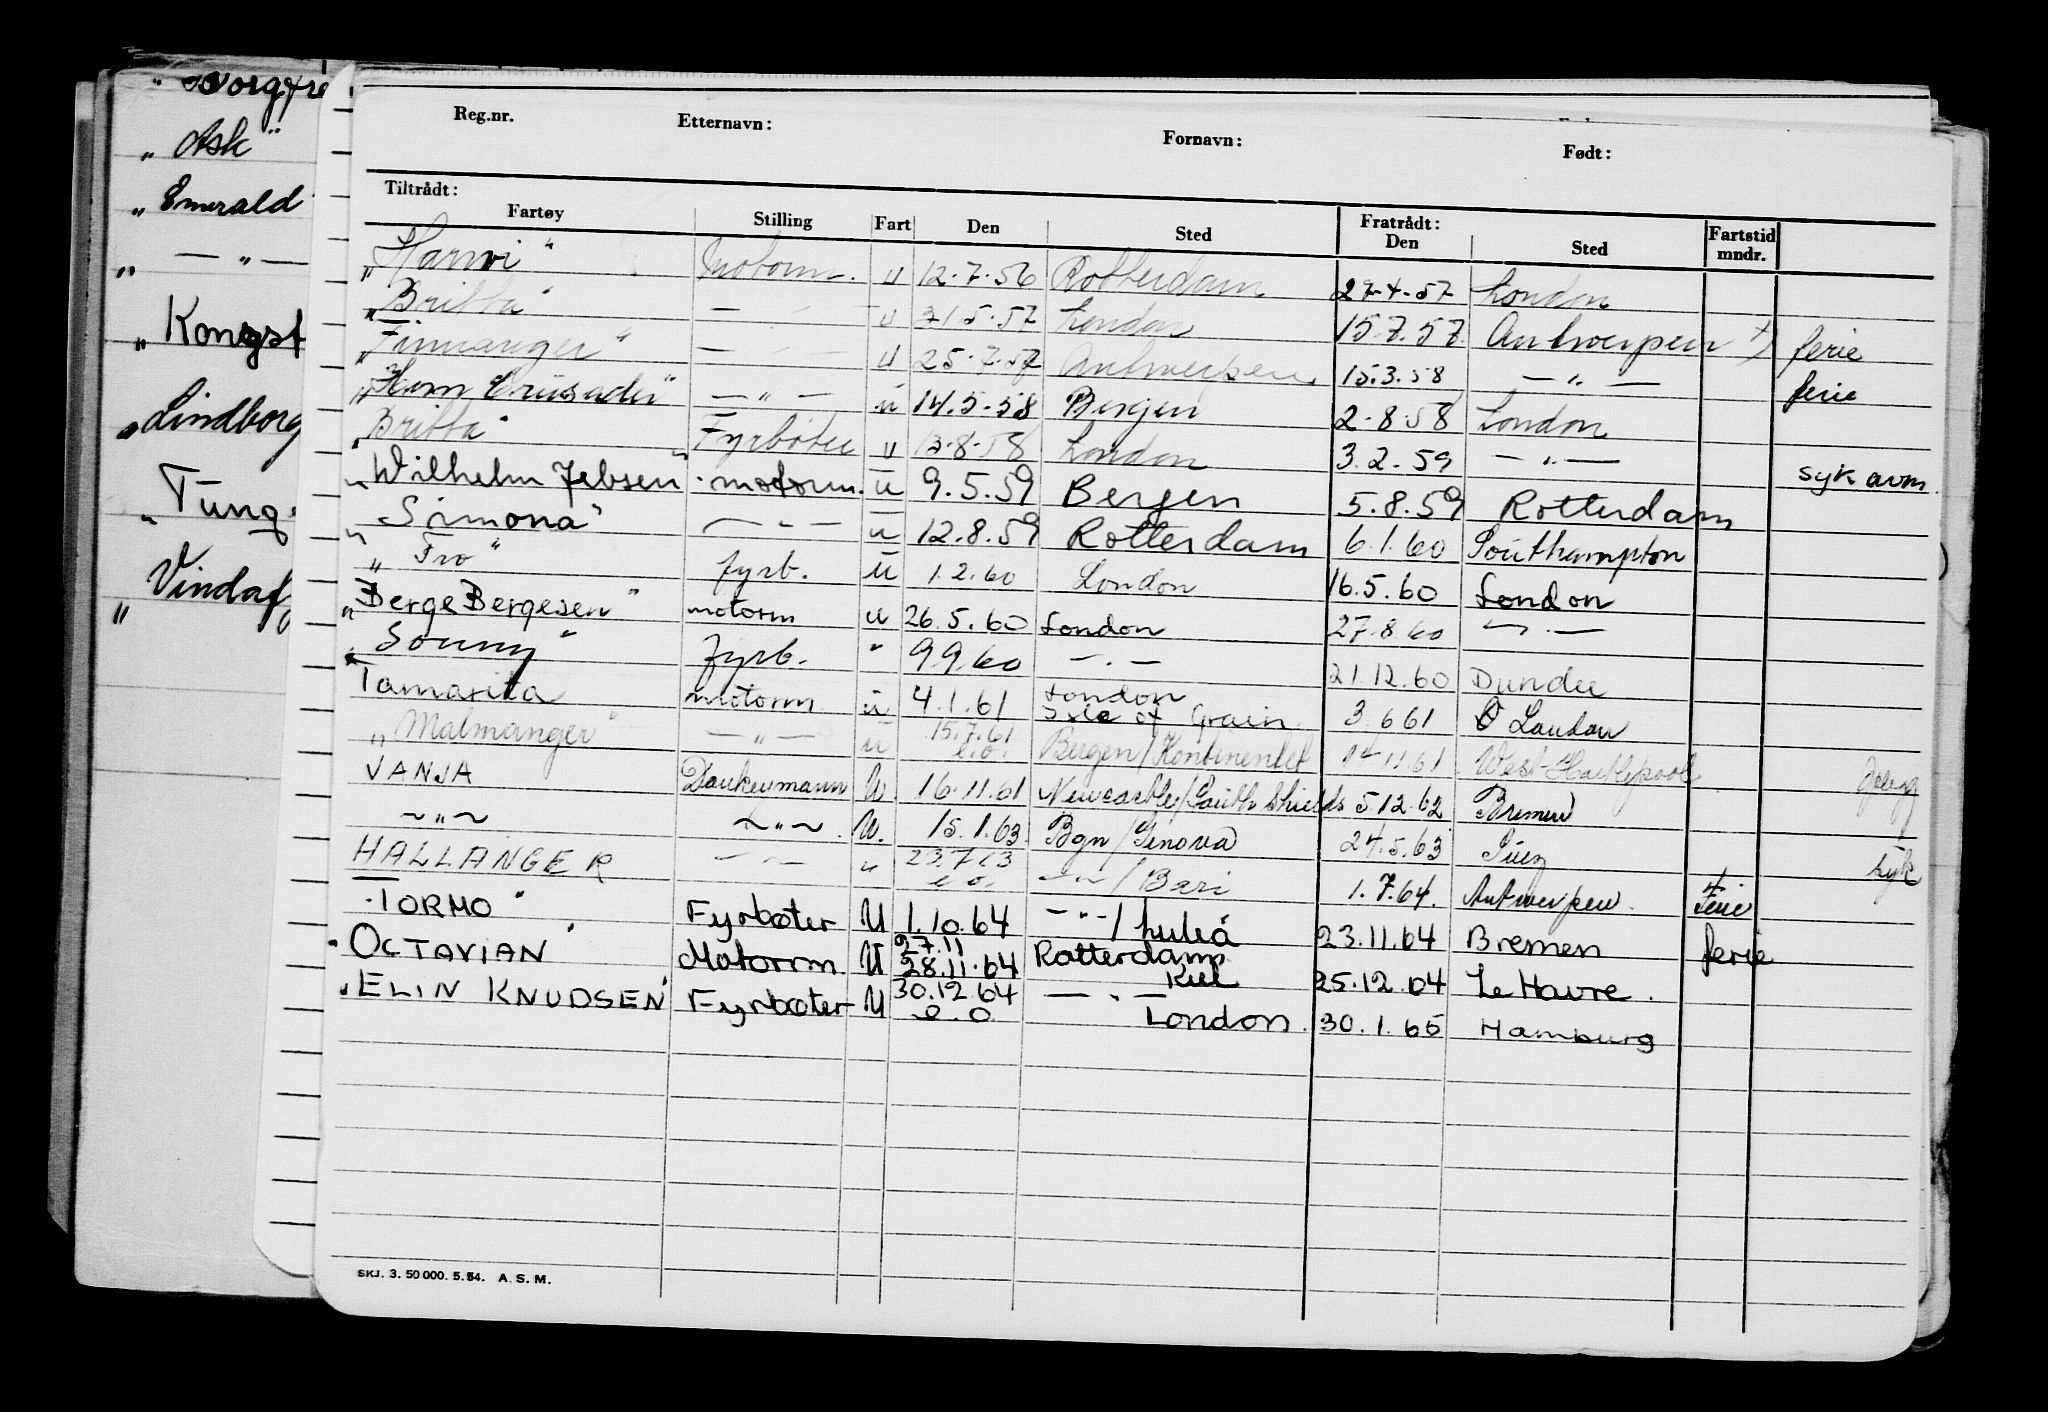 " Borgfre
" Ask "
" Emerald "
" — " —
" Kongst
" Lindborg
" Tung
" Vindaf
Reg.nr. Etternavn: Fornavn: Født:
Tiltrådt: Fratrådt:
Fartøy Stilling Fart Den Sted Den Sted Fartstid mndr.
" Harwi " Motorm. u 12.7.56 Rotterdam 27.4.57 London
" Britta " — " — u 21.5.57 London 15.7.57 Antwerpen +) ferie
" Finnanger " — " — u 25.7.57 Antwerpen 15.3.58 — " — ferie
" Herm Crusader " — " — u 14.5.58 Bergen 2.8.58 London
" Britta " Fyrbøter u 13.8.58 London 3.2.59 — " — syk avm.
" Wilhelm Jebsen " motorm. u 9.5.59 Bergen 5.8.59 Rotterdam
" Simona " — " — u 12.8.59 Rotterdam 6.1.60 Southampton
" Fro " fyrb. u 1.2.60 London 16.5.60 London
" Berge Bergesen " motorm u 26.5.60 London 27.8.60 — " —
" Sonny " fyrb. " 9.9.60 — " — 21.12.60 Dundee
Tamarita motorm u 4.1.61 London Isle of Grain 3.6.61 London
" Malmanger " — " — u 15.7.61 e.o. Bergen/Kontinentet 14.11.61 West-Hartlepool
VANJA Donkeymann U. 16.11.61 Newcastle/South Shields 5.12.62 Bremen
~ " ~ ~ " ~ U. 15.1.63 Bgn/Genova 24.5.63 Suez syk
HALLANGER — " — " 23.7.63 e.o. — " — / Bari 1.7.64. Antwerpen. + Ferie
" TORMO " Fyrbøter U 1.10.64 — " — / Luleå 23.11.64 Bremen ferie
" OCTAVIAN " Motorm U 27.11 28.11.64 Rotterdam Kiel 25.12.64 Le Havre.
" ELIN KNUDSEN " Fyrbøter U 30.12.64 e.o — " — London. 30.1.65 Hamburg
SKJ. 3. 50 000. 5. 54. A. S. M.